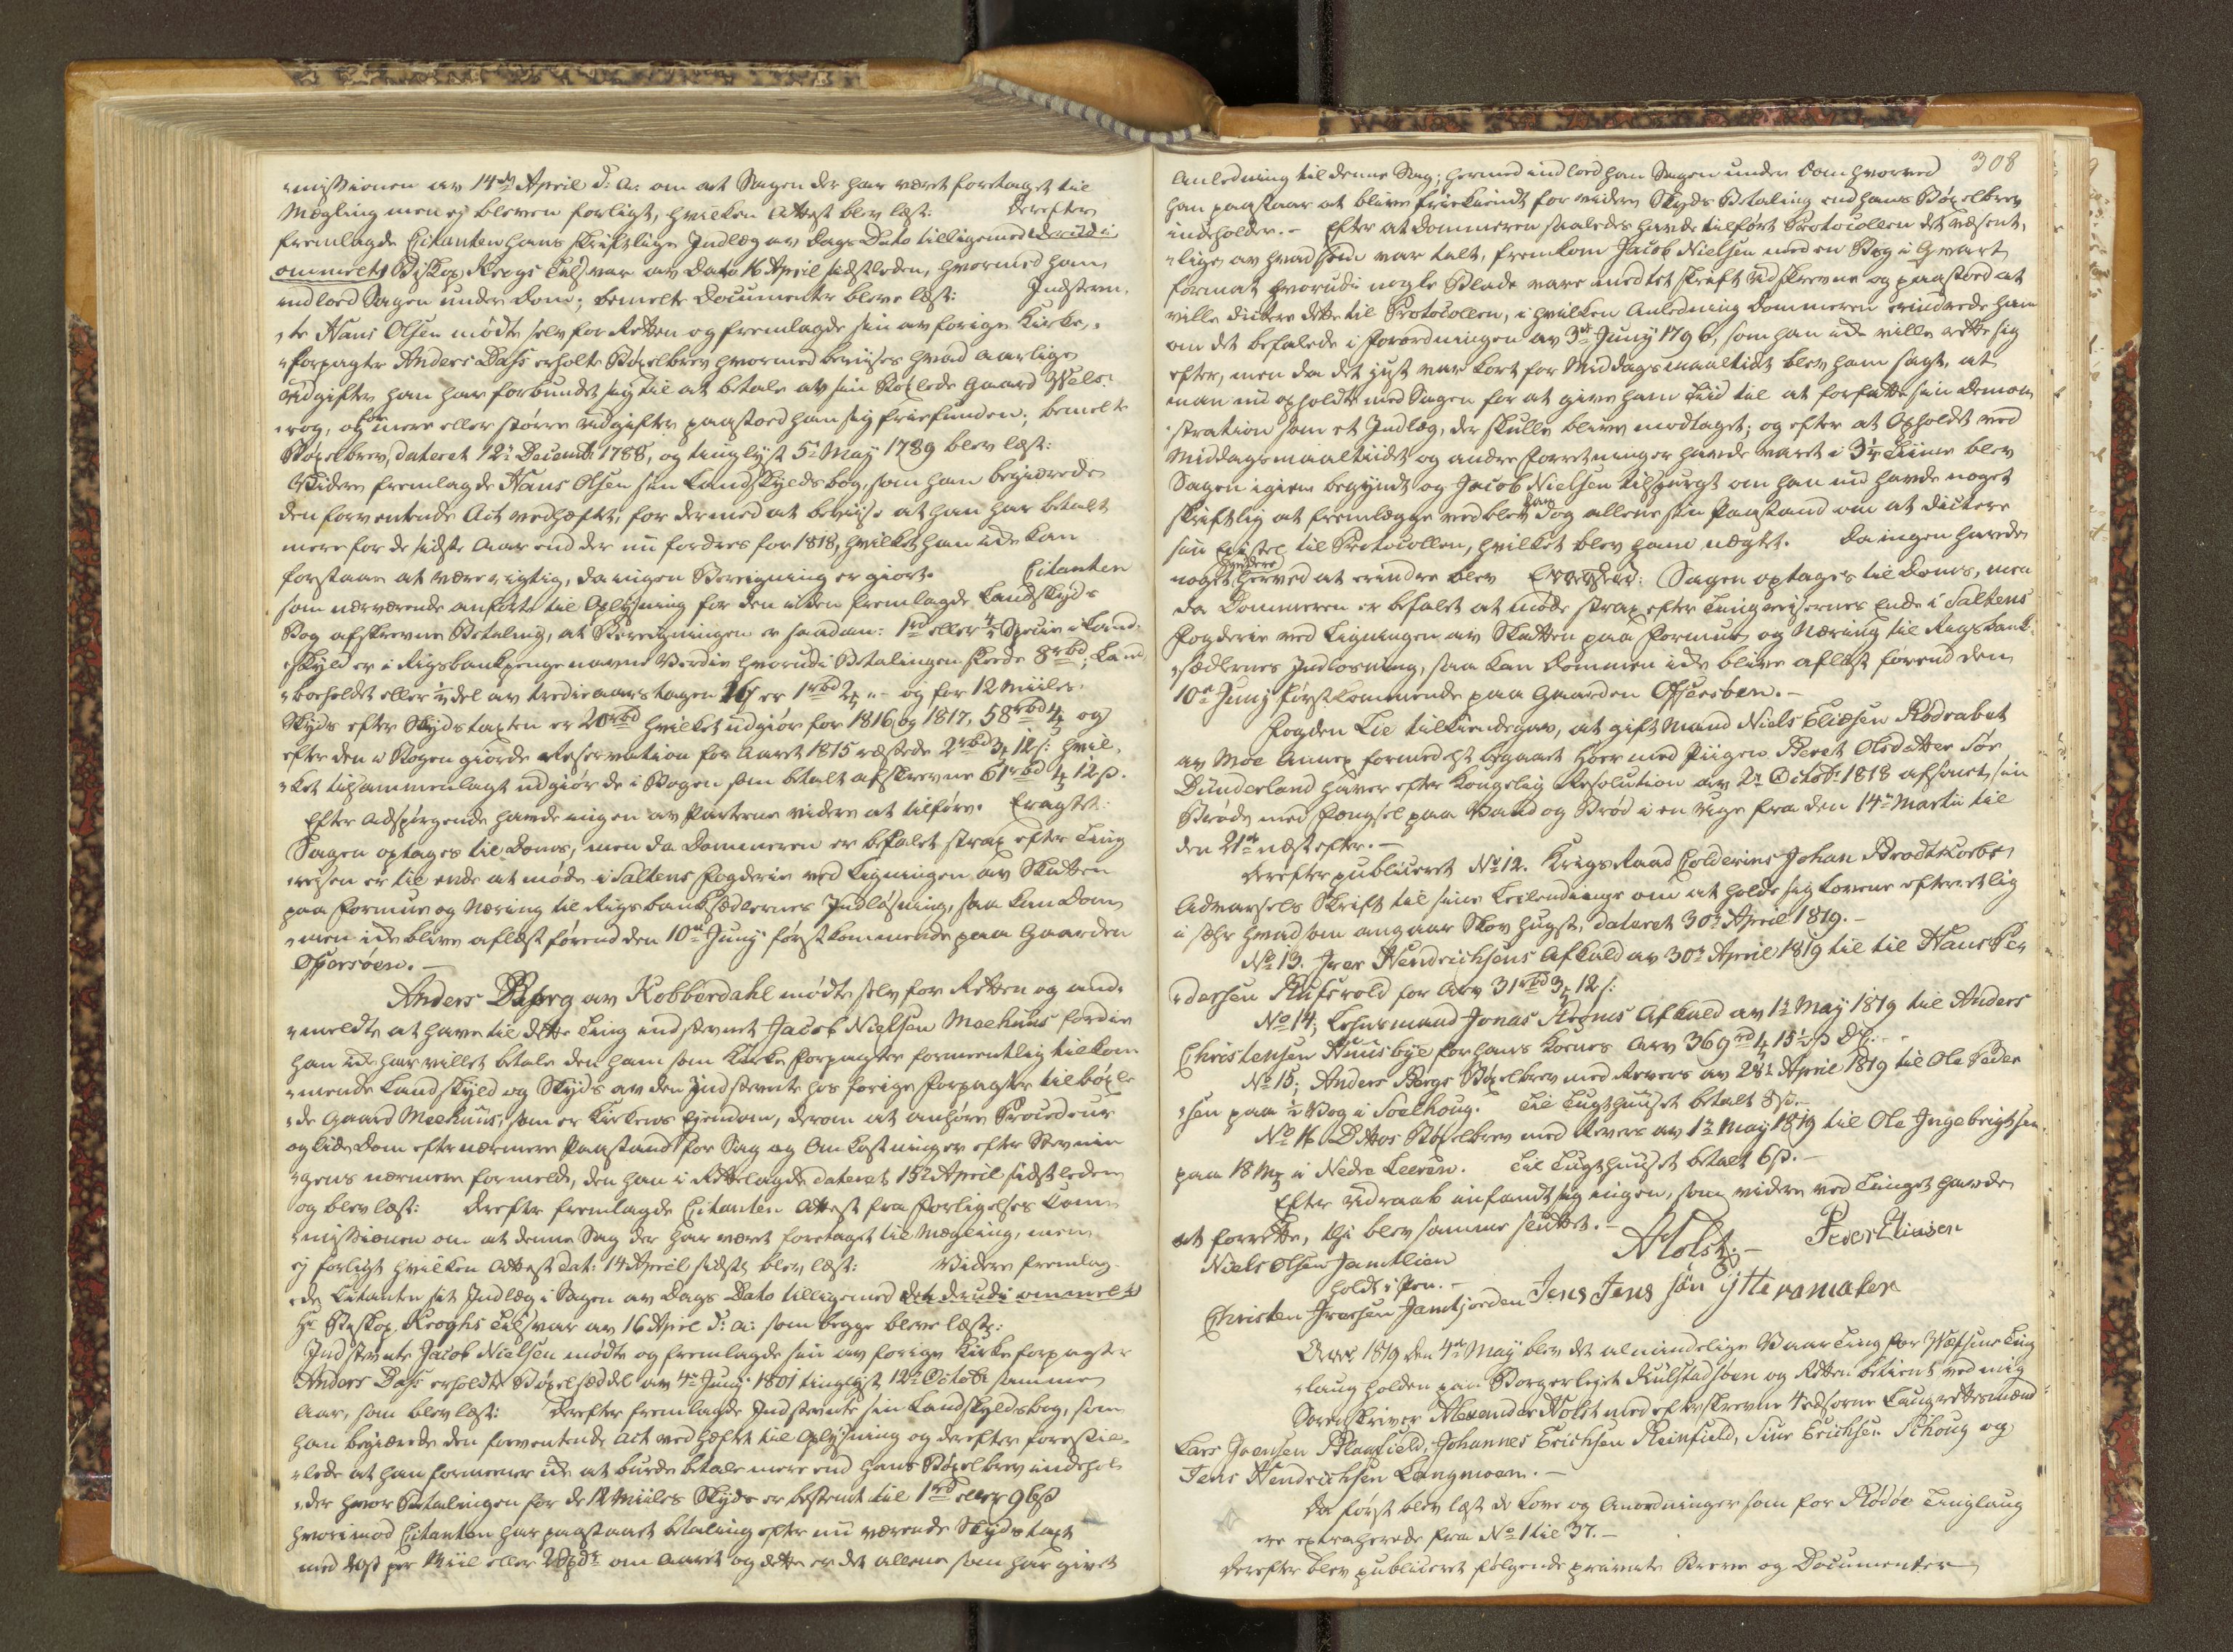 missionen av 14de April d: a: om at Sagen der har været foretaget til
Mægling men ej bleven forligt, hvilken Attest blev læst: Derefter
fremlagde Citanten hans skriftlige Indlæg av Dags Dato tilligemed derudi
ommelte Biskop Krogs Tilsvar av Dato 16 April sidstleden, hvormed han
indlod Sagen under Dom; bemelte Documenter bleve læst: Indstevn,
te Hans Olsen mødte selv for Retten og fremlagde sin av forige Kirke,
forpagter Anders Dass erholte Bøxelbrev hvormed beviises hvad aarlige
Udgifter han har forbundet sig til at betale av sin bøxlede Gaard
vog, og for mere eller større udgifter paastod han sig friefunden; bemelte
Bøxelbrev, dateret 12te Decembr 1788, og tinglyst 5te May 1789 blev læst:
Videre fremlagde Hans Olsen sin Landskyldsbog, som han begiærede
den forventende Act vedhæftet, for dermed at beviise at han har betalt
mere for de sidste Aar end der nu fordres for 1818, hvilket han ikke kan
forstaae at være rigtig, da ingen Beregning er giort. Citanten
som nærværende anførte til Oplysning for den i den fremlagde Landskylds
Bog afskrevne Betaling, at Beregningen er saadan: 1rd eller 4/5 Specie i Land,
skyld er i Rigsbankpenge navne Værdie hvorudi Betalingen skeede 8rbd; Land
boeholdet eller ½ del av tredieaarstagen er 1rbd 2 " - og for 12 Miiles
Skyds efter Skydstaxten er 20rbd hvilket udgiør for 1816 og 1817, 58rbd 4 og
efter den i Bogen giorde Reservation for Aaret 1815 restede 2rbd 3 12 s: hvil,
ket tilsammenlagt udgiør de i Bogen som betalt afskrevne 61rbd 4 12 s.
Efter Adspørgende havde ingen av Parterne videre at tilføre. Eragtet:
Sagen optages til Doms, men da Dommeren er befalet strax efter Ting
reisen er til ende at møde i Saltens Fogderie ved Ligningen av Skatten
paa Formue og Næring til Rigsbanksædlernes Indløsning, saa kan Dom
men ikke blive aflæst førend den 10de Juny først kommende paa Gaarden
Offersøen. -
Anders Bjørg av Kobberdahl mødte selv for Retten og and
meldte at have til dette Ting indstevnet Jacob Nielsen Meehuus fordie
han ikke har villet betale den ham som Kirke Forpagter formeentlig tilkom
mende Landskyld og Skyds av den Indstevnte hos forige Forpagter tilbøxle
de Gaard Meehuus, som er Kirkens Eiendom, derom at anhøre Procedeur
og lide Dom efter nærmere Paastand for Sag og Omkostninger efter Stevnin
gens nærmere formelde, den han i Rettelagde dateret 15de April sidstleden
og blev læst: Derefter fremlagde Citanten Attest fra Forligelses Com
missionen om at denne Sag der har været foretaget til Mægling, men
ej forligt hvilken Attest dat: 14 April sidste blev læst: Videre fremlag
de Citanten sit Indlæg i Sagen av Dags Dato tilligemed det derudi ommelte
Hr Biskop Kroghs Tilsvar av 16 April d: a: som begge bleve læst:
Indstevnte Jacob Nielsen mødte og fremlagde sin av forige Kirke forpagter
Anders Dass erholdte Bøxelsæddel av 4de Juny 1801 tinglyst 12te Octobr samme
Aar, som blev læst: Derefter fremlagde Indstevnte sin Landskyldsbog, som
han begiærede den forventende Act vedhæftet til Oplysning og derefter forestil
lede at han formener ikke at burde betale mere end hans Bøxelbrev indehol
der hvor Betalingen for de 12 Miiles Skyds er bestemt til 1rd eller 96 s
hvorimod Citanten har paastaaet betaling efter nu værende Skydstaxt
med per Miil eller om Aaret og dette er det allene som har givet
308
Anledning til denne Sag; hermed indlod han Sagen under Dom hvorved
han paastaar at blive friekiendt for videre Skyds Betaling end hans Bøxelbrev
indeholder. - Efter at Dommeren saaledes havde tilført Protocollen det væsent,
lige av hvad som var talt, fremkom Jacob Nielsen med en Bog i Qvart
format hvorudi nogle Blade vare med tet skrift udskrevne og paastod at
ville dictere dette til Protocollen, i hvilken Anledning Dommeren erindrede ham
om det befalede i Forordningen av 3de Juny 1796, som han ikke ville rette sig
efter, men da det just var kort for Middagsmaaltidet blev ham sagt, at
man nu opholdt med Sagen for at give ham Tiid til at forfatte sin Demon
stration som et Indlæg, der skulle blive modtaget; og efter at Opholdt ved
Middagsmaaltiidet og andre Forretninger havde varet i 3½ Time blev
Sagen igien begyndt og Jacob Nielsen tilspurgt om han nu havde noget
skriftlig at fremlægge vedblev han dog allene sin Paastand om at dictere
sin Epistel til Protocollen, hvilket blev ham nægtet. Da ingen havde
noget videre herved at erindre blev Eragtet: Sagen optages til Doms, men
da Dommeren er befalet at møde strax efter Tingreisernes Ende i Saltens
Fogderie ved Ligningen av Skatten paa Formue og Næring til Rigsbank,
sædlernes Indløsning, saa kan Dommen ikke blive aflæst førend den
10de Juny førstkommende paa Gaarden Offersøen. -
Fogden Lie tilkiendegav, at gift Mand Niels Eliæsen Rødvabet
av Moe Annex formedelst begaaet Hoer med Piigen Beret Olsdatter Sør
Dunderland haver efter Kongelig Resolution av 2de Octobr 1818 afsonet sin
Brøde med Fængsel paa Vand og Brød i en Uge fra den 14de Martii til
den 21de næstefter. -
Derefter publiceret No 12. Krigsraad Colderins Johan Brodtkorbs
Advarsels Skrift til sine Leilendinge om at holde sig Lovene efterretlig
i sær hvad som angaar Skov hugst, dateret 30te April 1819. -
No 13. Iver Hendrichsens Afkald av 30te April 1819 til til Hans Pe
dersen Rufsvold for Arv 31rbd 3 12 s:
No 14; Lehnsmand Jonas Stroms Afkald av 1te May 1819 til Anders
Christensen Huusbye for hans Kones Arv 369rd 4 15½ s D.C. -
No 15; Anders Bergs Bøxelbrev med Revers av 28de April 1819 til Ole Peder
sen paa ½ Vog i Soelhoug. Til Tugthuuset betalt 8 s. -
No 16 Dittos Bøxelbrev med Revers av 1te May 1819 til Ole Ingebrigtsen
paa 18 Mk i Nedre Leeren. Til Tugthuuset betalt 6 s. -
Efter Udraab infandt sig ingen, som videre ved Tinget havde
at forrette, thi blev samme sluttet. -
AHolst. - Peder Eliasen
Niels Olsen Jamtlien
holdt i Pen. -
Christen Iversen Jamtjorden Jens Jens søn ytteramaken
Aaret 1819 den 4de May blev det almindelige Vaar Ting for Ting
laug holden paa Borgerlejet Kulstadsøen og Retten betient ved mig
Sorenskriver Alexander Holst med efterskrevne 4 edsorne Laugrettesmænd:
Lars Joensen Blaafield, Johannes Erichsen Reinfield, Siur Erichsen Schoug og
Jens Hendrichsen Langmoen. -
Da først blev læst de Love og Anordninger som for Rødøe Tinglaug
ere extraherede fra No 1 til 37. -
Derefter blev publiceret følgende private Breve og Documenter